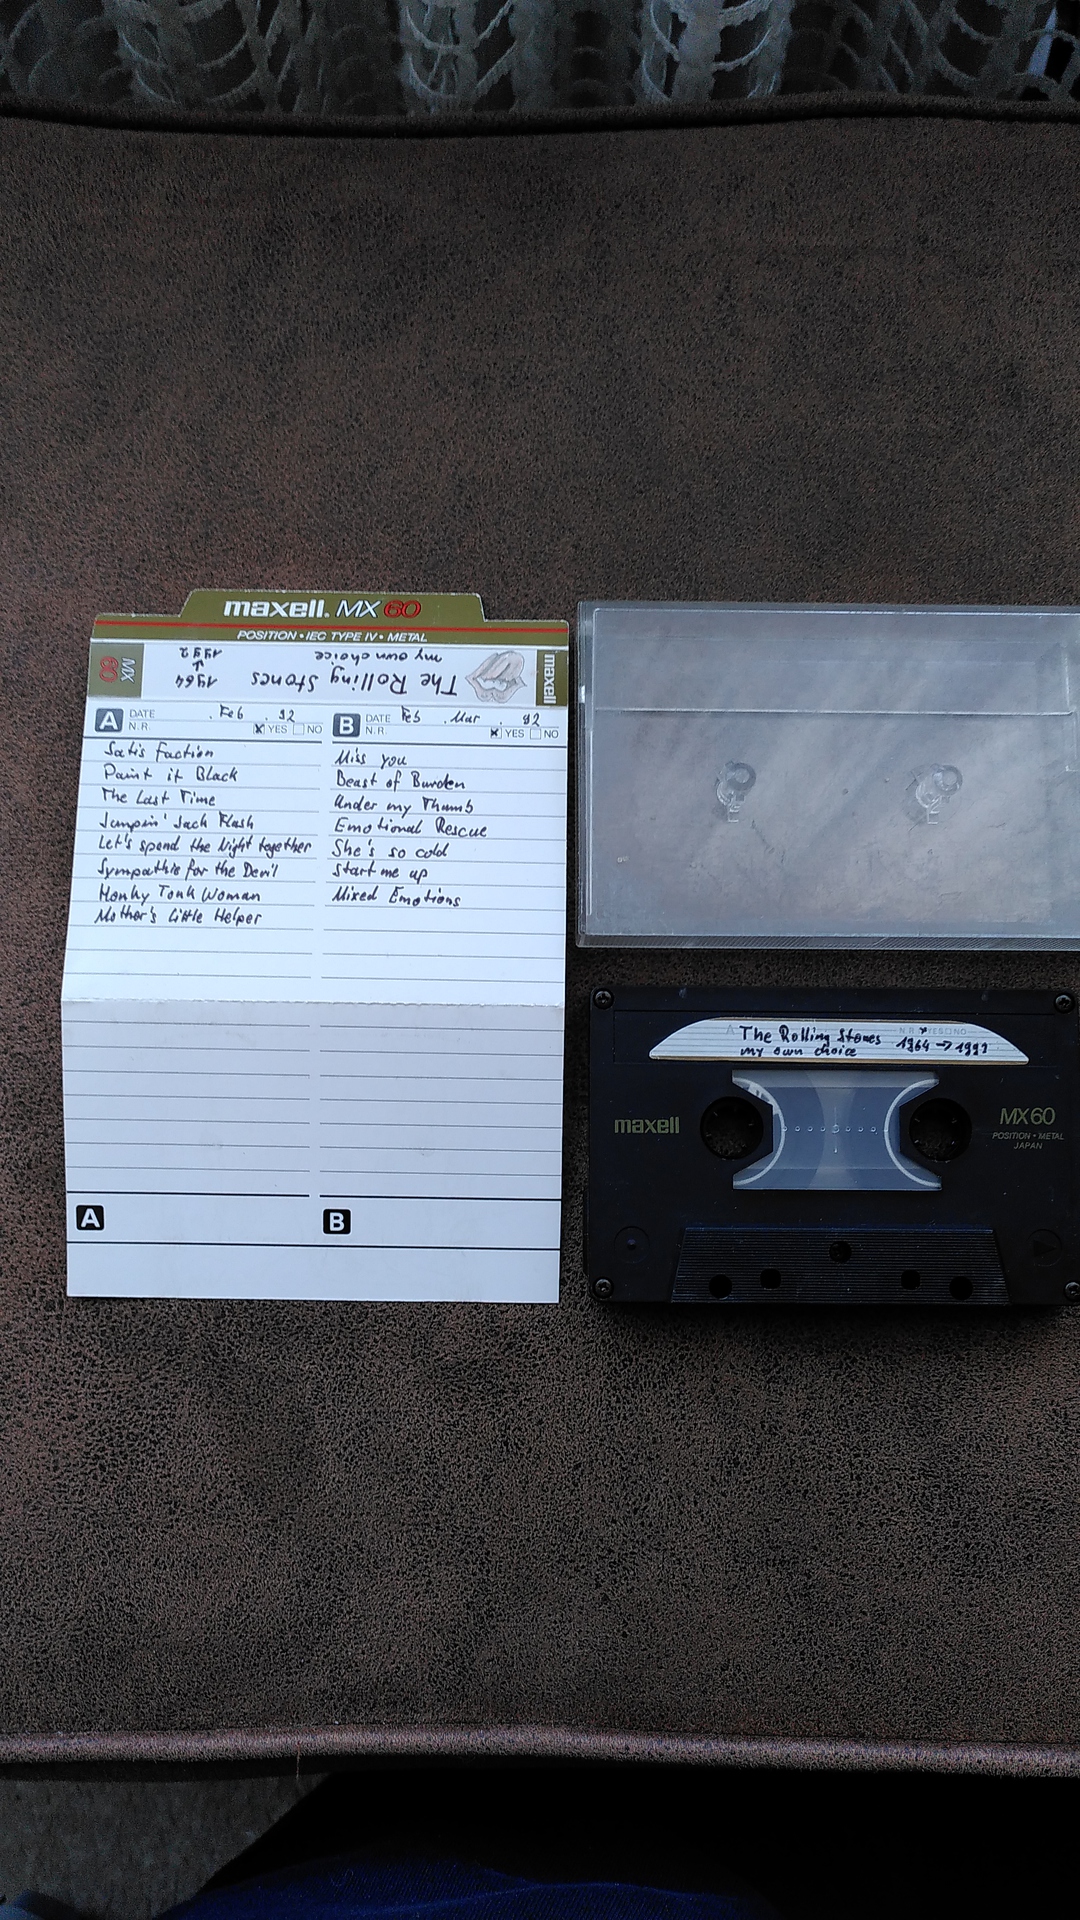 maxell. MX 60
POSITION • IEC TYPE IV • METAL
MX 60
The Rolling Stones
my own choice
1964
↓
1992
maxell
A DATE . Feb . 92
N.R. ☒ YES ☐ NO
Satis faction
Paint it Black
The Last Time
Jumpin' Jack Flash
Let's spend the Night together
Sympathie for the Devil
Honky Tonk Woman
Mother's Little Helper
B DATE Feb . Mar . 92
N.R. ☒ YES ☐ NO
Miss you
Beast of Burden
Under my Thumb
Emotional Rescue
She's so cold
Start me up
Mixed Emotions
A
B
A The Rolling Stones
my own choice
N.R. YES NO
1964 → 1992
maxell
MX60
POSITION • METAL
JAPAN